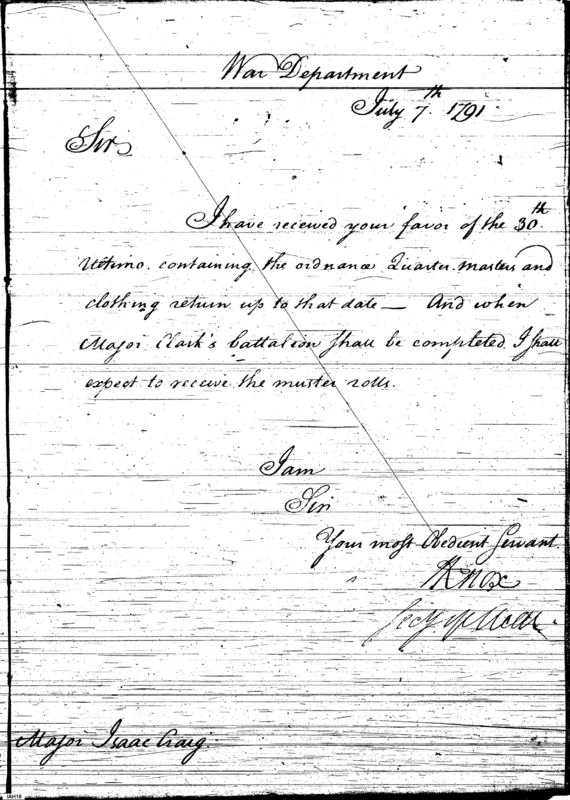 War Department
July 7th 1791.
Sir
I have received your favor of the 30th
Ultimo. containing the ordnance Quarter masters and
clothing return up to that date — And when
Major Clark's battalion shall be completed I shall
expect to receive the muster rolls.
I am
Sir
Your most Obedient Servant.
HKnox
Secy of War.
Major Isaac Craig
IAH18